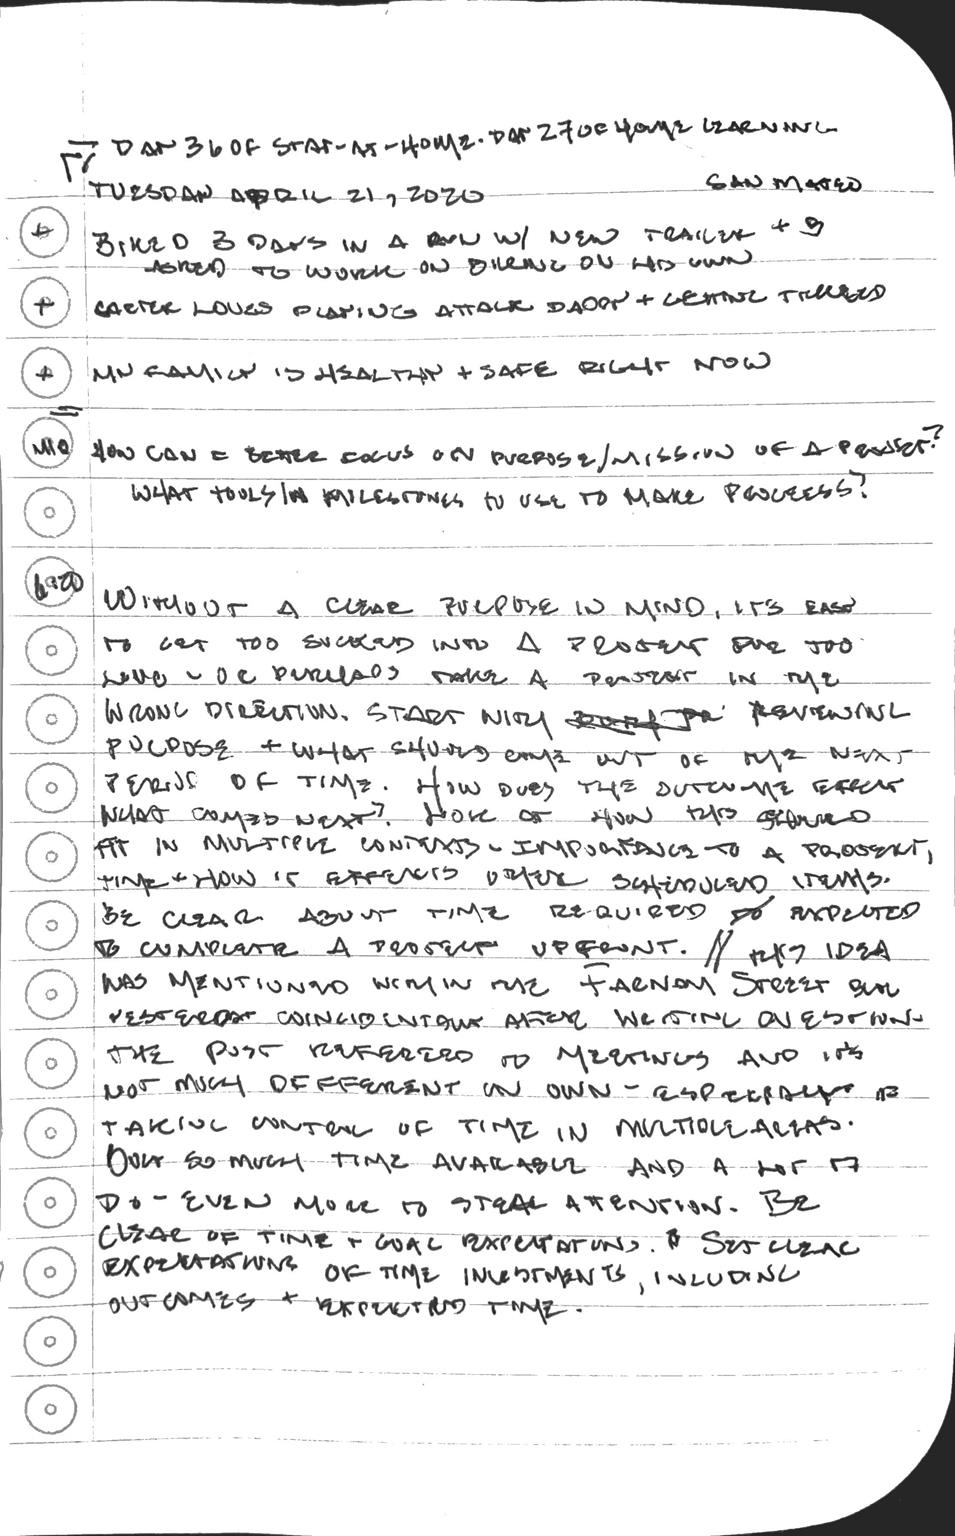 DAY 36 OF STAY-AT-HOME. DAY 27 OF HOME LEARNING
TUESDAY APRIL 21, 2020 SAN MATEO
+ BIKED 3 DAYS IN A ROW W/ NEW TRAILER + 
ASKED TO WORK ON BIKING ON HIS OWN
+ CARTER LOVES PLAYING ATTACK DADDY + GETTING TICKLED
+ MY FAMILY IS HEALTHY + SAFE RIGHT NOW
MIQ HOW CAN I BETTER FOCUS ON PURPOSE/MISSION OF A PROJECT?
WHAT TOOLS/ MILESTONES TO USE TO MAKE PROGRESS?
WITHOUT A CLEAR PURPOSE IN MIND, IT'S EASY
TO GET TOO SUCKED INTO A PROJECT FOR TOO
LONG - OR PERHAPS TAKE A PROJECT IN THE
WRONG DIRECTION. START WITH REVIEWING
PURPOSE + WHAT SHOULD COME OUT OF THE NEXT
PERIOD OF TIME. HOW DOES THE OUTCOME EFFECT
WHAT COMES NEXT? LOOK AT HOW THIS SHOULD
FIT IN MULTIPLE CONTEXTS - IMPORTANCE TO A PROJECT,
TIME + HOW IT EFFECTS OTHER SCHEDULED ITEMS.
BE CLEAR ABOUT TIME REQUIRED EXPECTED
TO COMPLETE A PROJECT UPFRONT. // THIS IDEA
WAS MENTIONED WITHIN THE FARNAM STREET
YESTERDAY COINCIDENTALLY AFTER WRITING QUESTION.
THE POST REFERRED TO MEETINGS AND IT'S
NOT MUCH DIFFERENT ON OWN - ESPECIALLY
TAKING CONTROL OF TIME IN MULTIPLE AREAS.
ONLY SO MUCH TIME AVAILABLE AND A LOT TO
DO - EVEN MORE TO STEAL ATTENTION. BE
CLEAR OF TIME + GOAL EXPECTATIONS. SET CLEAR
EXPECTATIONS OF TIME INVESTMENTS, INCLUDING
OUTCOMES + EXPECTED TIME.